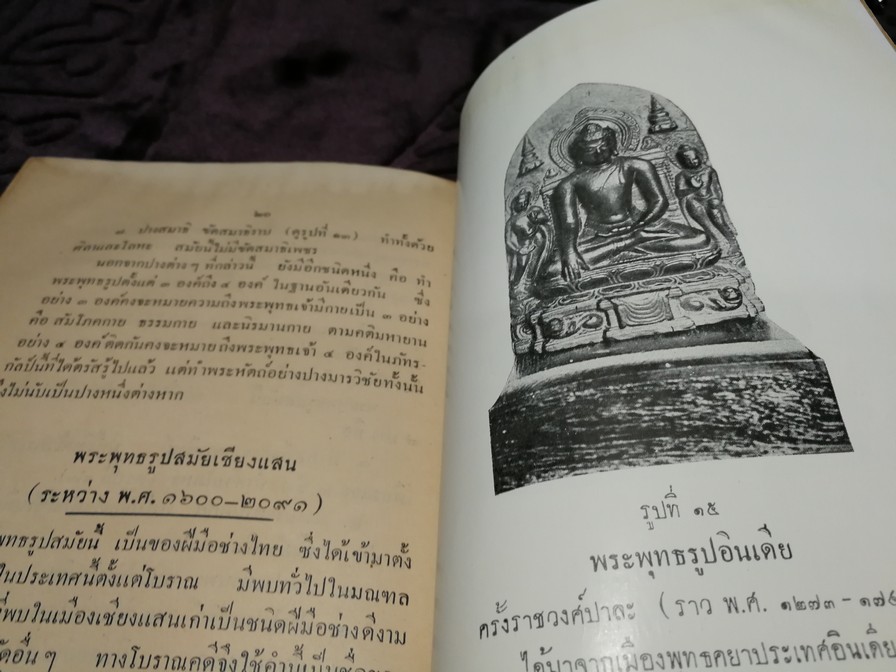 ๒๐
๗ ปางสมาธิ ขัดสมาธิราบ (ดูรูปที่ ๑๓) ทำทั้งด้วย
ศิลาและโลหะ สมัยนี้ไม่มีขัดสมาธิเพชร
นอกจากปางต่าง ๆ ที่กล่าวนี้ ยังมีอีกชนิดหนึ่ง คือ ทำ
พระพุทธรูปตั้งแต่ ๓ องค์ถึง ๔ องค์ ในฐานอันเดียวกัน ซึ่ง
อย่าง ๓ องค์คงจะหมายความถึงพระพุทธเจ้ามีกายเป็น ๓ อย่าง
คือ สัมโภคกาย ธรรมกาย และนิรมานกาย ตามคติมหายาน
อย่าง ๔ องค์ติดกันคงจะหมายถึงพระพุทธเจ้า ๔ องค์ในภัทร-
กัลป์นี้ที่ได้ตรัสรู้ไปแล้ว แต่ทำพระหัตถ์อย่างปางมารวิชัยทั้งนั้น
ซึ่งไม่นับเป็นปางหนึ่งต่างหาก
พระพุทธรูปสมัยเชียงแสน
(ระหว่าง พ.ศ. ๑๖๐๐–๒๐๙๑)
พุทธรูปสมัยนี้ เป็นของฝีมือช่างไทย ซึ่งได้เข้ามาตั้ง
ในประเทศนี้ตั้งแต่โบราณ มีพบทั่วไปในมณฑล
พบในเมืองเชียงแสนเก่าเป็นชนิดฝีมือช่างดีงาม
อื่น ๆ ทางโบราณคดีจึงใช้คำนี้เป็น
รูปที่ ๑๕
พระพุทธรูปอินเดีย
ครั้งราชวงศ์ปาละ (ราว พ.ศ. ๑๒๗๓–
ได้มาจากเมืองพุทธคยาประเทศอินเดีย